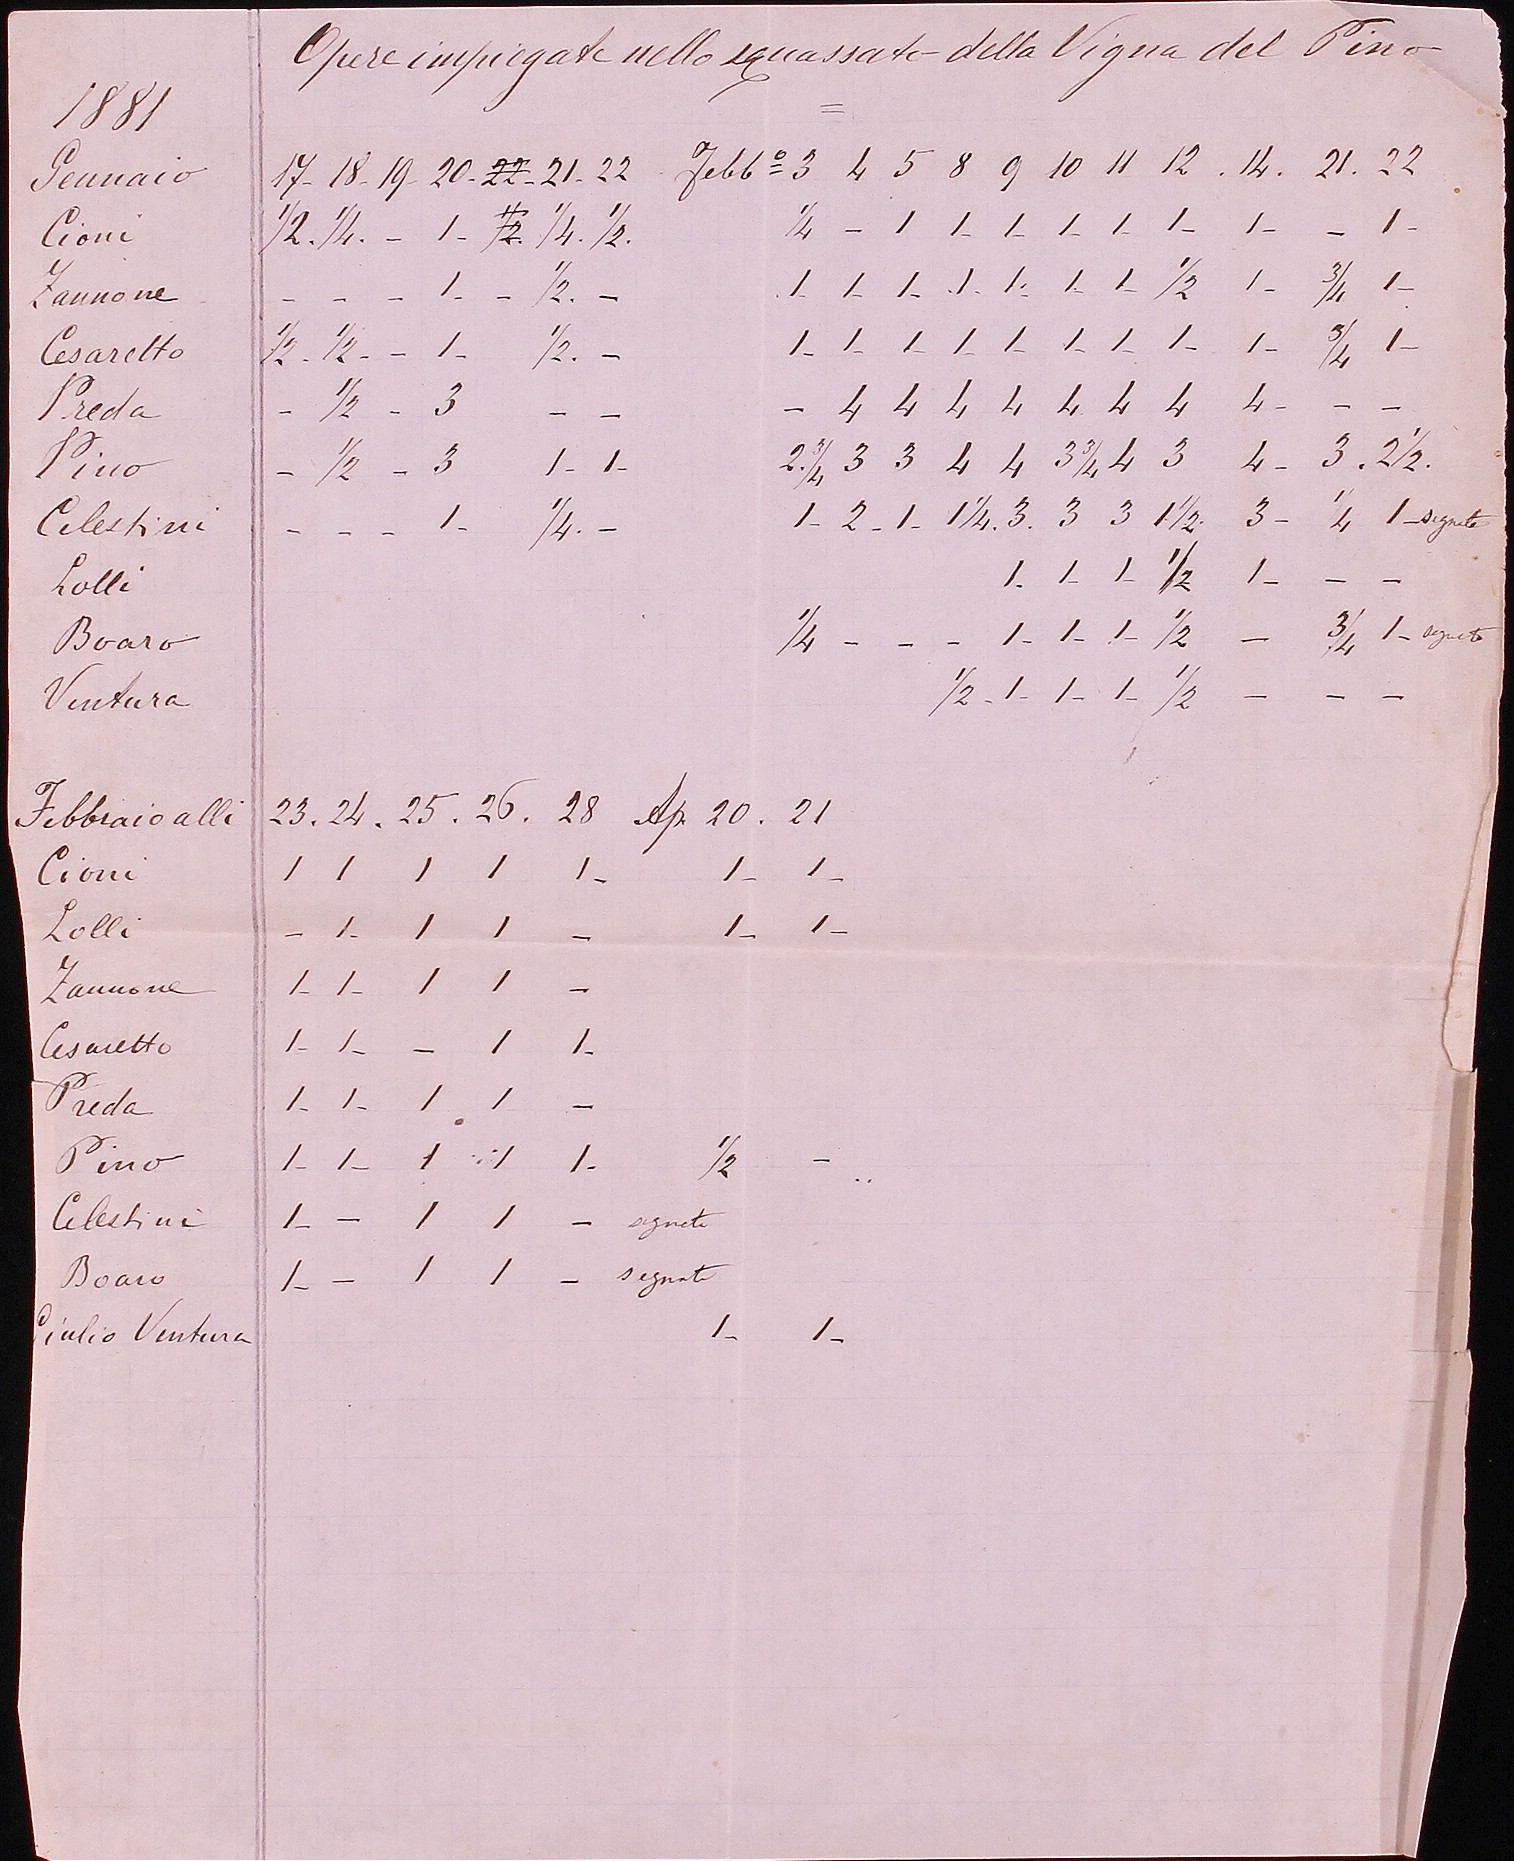 Opere impiegate nello squassato della Vigna del Pino
=
1881
Gennaio 17- 18- 19- 20- 22- 21- 22 Febb.o = 3 4 5 8 9 10 11 12 . 14. 21. 22
Cioni 1/2. 1/4. - 1- 1/2. 1/4. 1/2. 1/4 - 1 1- 1- 1- 1- 1- 1- - 1-
Zannone - - - 1- - 1/2. - 1- 1- 1- 1- 1- 1- 1- 1/2 1- 3/4 1-
Cesaretto 1/2- 1/2- - 1- 1/2. - 1- 1- 1- 1- 1- 1- 1- 1- 1- 3/4 1-
Preda - 1/2 - 3 - - - 4 4 4 4 4 4 4 4- - -
Pino - 1/2 - 3 1- 1- 2.3/4 3 3 4 4 3 3/4 4 3 4- 3. 2 1/2.
Celestini - - - 1- 1/4. - 1- 2- 1- 1 1/4. 3. 3 3 1 1/2. 3- 1/4 1- segnate
Lolli 1- 1- 1- 1/2 1- - -
Boaro 1/4 - - - 1- 1- 1- 1/2 - 3/4 1- segnate
Ventura 1/2- 1- 1- 1- 1/2 - - -
Febbraio alli 23. 24. 25. 26. 28 Ap. 20. 21
Cioni 1 1 1 1 1- 1- 1-
Lolli - 1- 1 1 - 1- 1-
Zannone 1- 1- 1 1 -
Cesaretto 1- 1- - 1 1-
Preda 1- 1- 1 1 -
Pino 1- 1- 1 1 1- 1/2 -
Celestini 1- - 1 1 - segnate
Boaro 1- - 1 1 - segnate
Giulio Ventura 1- 1-